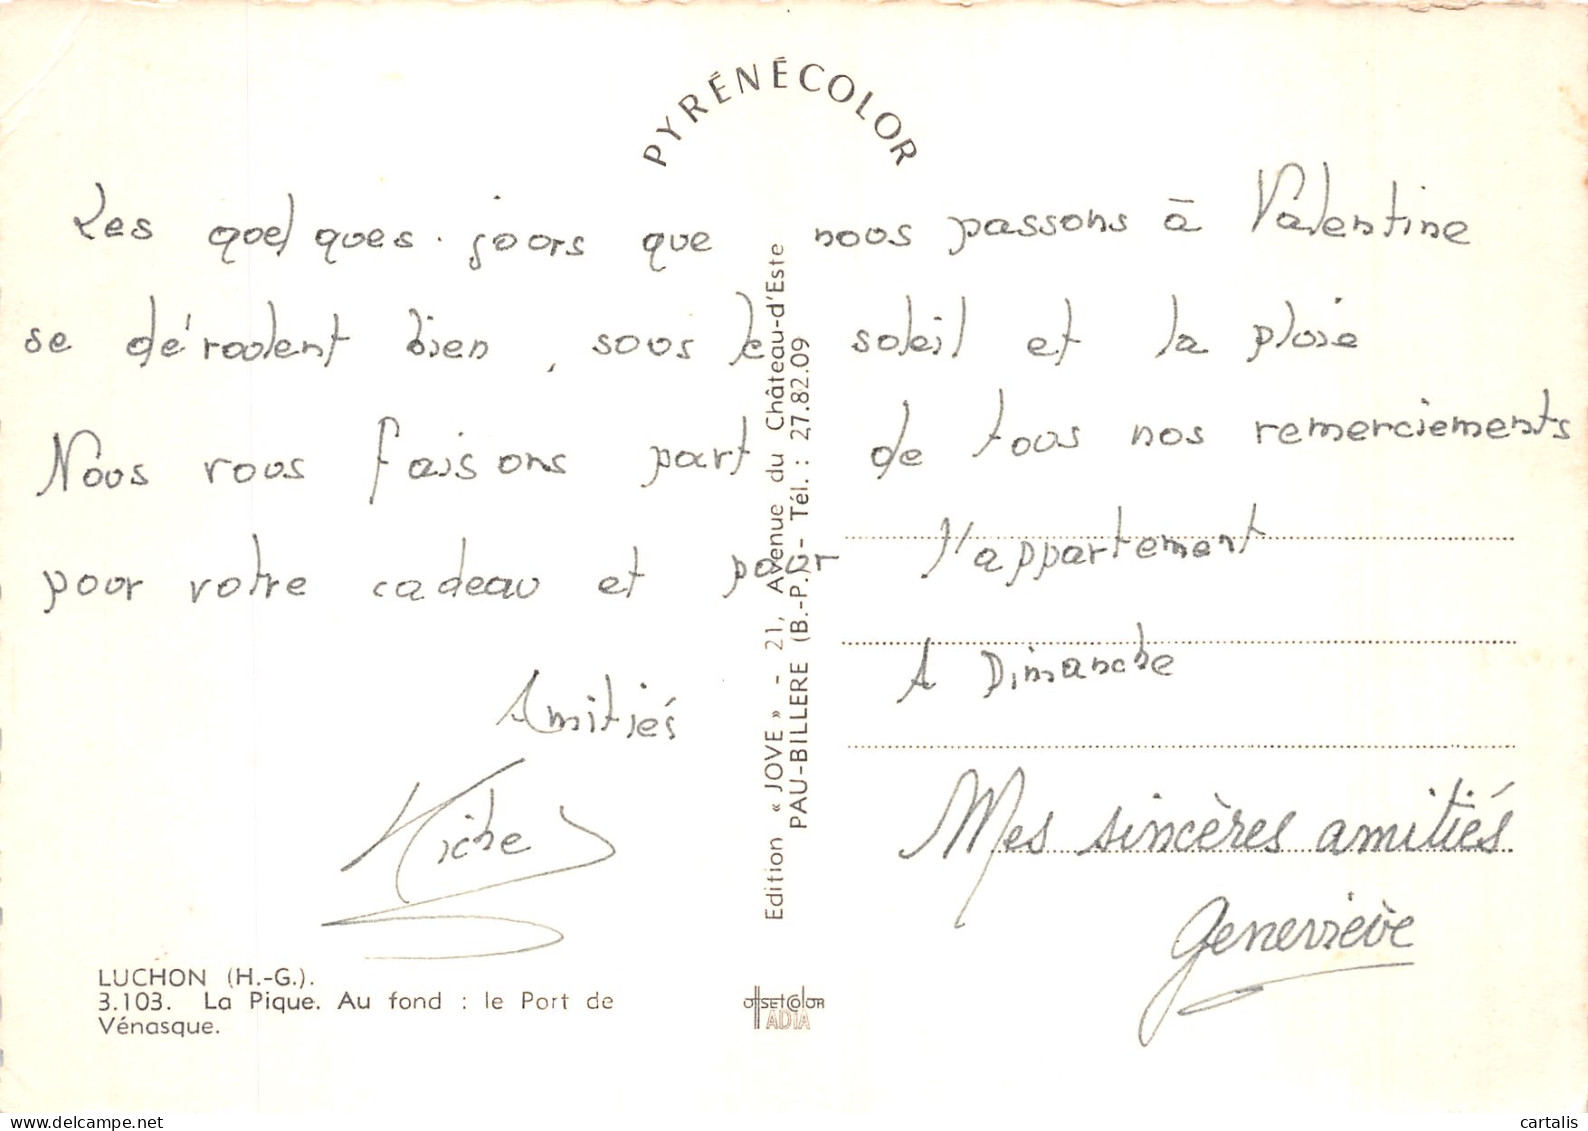 PYRÉNÉCOLOR
Les quelques jours que nous passons à Valentine
se déroulent bien, sous le soleil et la pluie
Nous vous faisons part de tous nos remerciements
pour votre cadeau et pour l'appartement
A Dimanche
Amitiés
Mes sincères amitiés
Geneviève
Edition « JOVE » - 21, Avenue du Château-d'Este
PAU-BILLERE (B.-P.) - Tél. : 27.82.09
LUCHON (H.-G.).
3.103. La Pique. Au fond : le Port de
Vénasque.
OffSETCOLOR
ADIA
cartalis